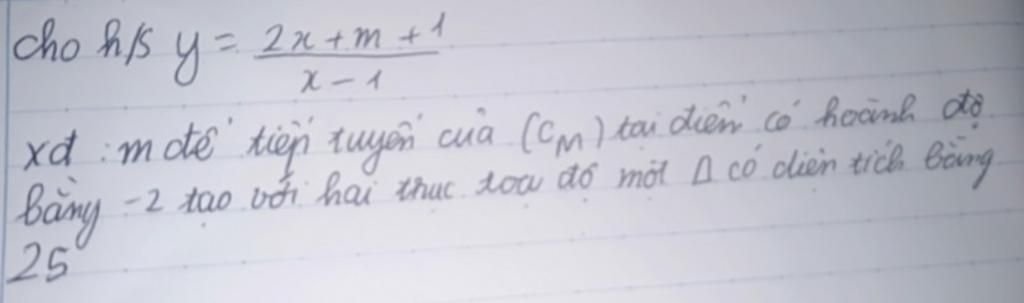 cho h/s y = \frac{2x+m+1}{x-1}
xđ : m để tiếp tuyến của (C_M) tại điểm có hoành độ
bằng -2 tạo với hai thục tọa độ một Δ có diện tích bằng
25